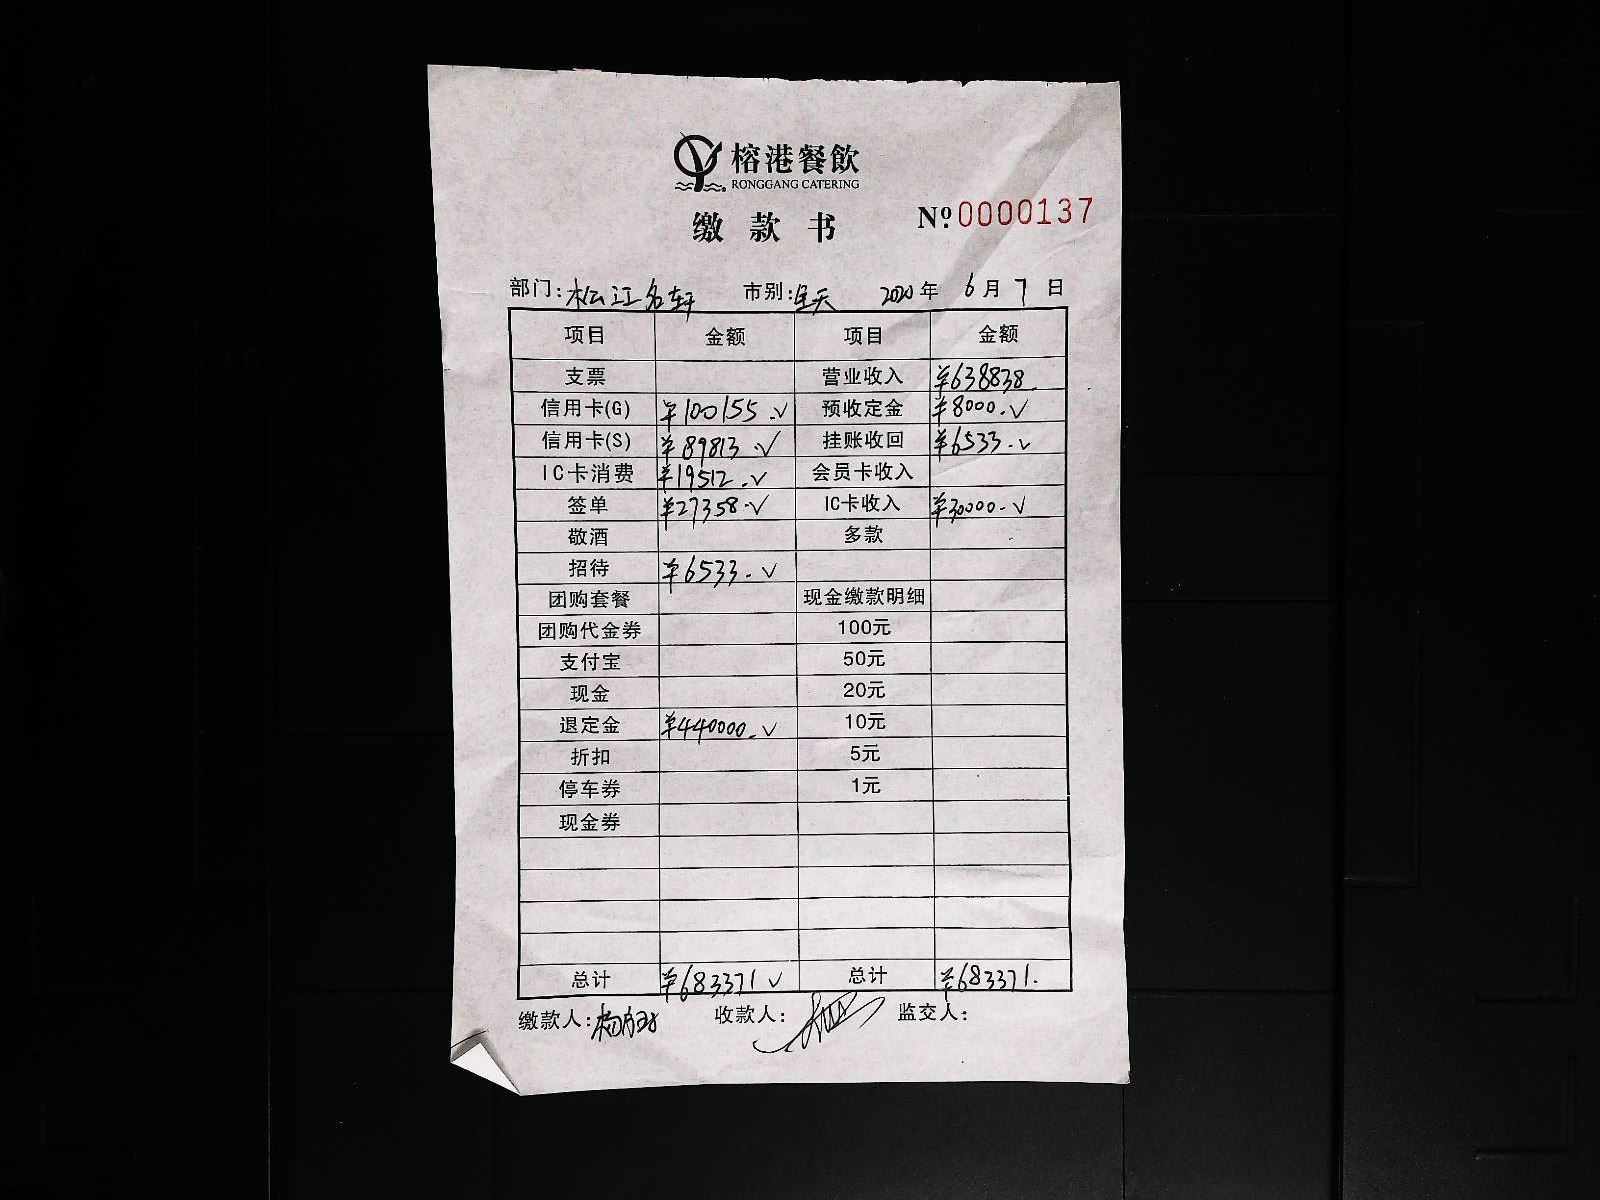 榕港餐飲
RONGGANG CATERING
缴款书 №0000137
部门:松江名轩 市别:全天 2020年6月7日
项目 金额 项目 金额
支票 营业收入 ¥638838.
信用卡(G) ¥100155.√ 预收定金 ¥8000.√
信用卡(S) ¥89813.√ 挂账收回 ¥6533.√
IC卡消费 ¥19512.√ 会员卡收入
签单 ¥27358.√ IC卡收入 ¥30000.√
敬酒 多款
招待 ¥6533.√
团购套餐 现金缴款明细
团购代金券 100元
支付宝 50元
现金 20元
退定金 ¥440000.√ 10元
折扣 5元
停车券 1元
现金券
总计 ¥683371√ 总计 ¥683371.
缴款人: 收款人: 监交人: